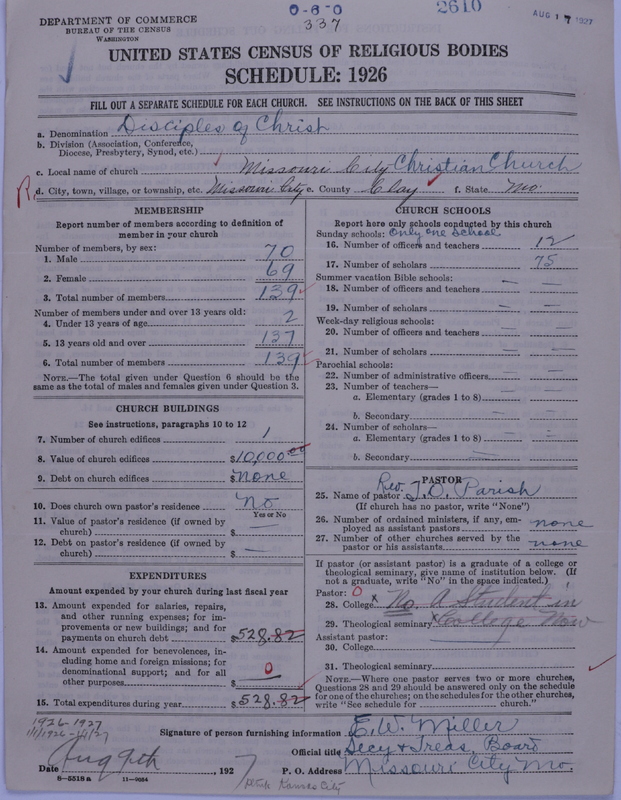 DEPARTMENT OF COMMERCE
BUREAU OF THE CENSUS
WASHINGTON
0-6-0
337
2610
AUG 17 1927
UNITED STATES CENSUS OF RELIGIOUS BODIES
SCHEDULE: 1926
FILL OUT A SEPARATE SCHEDULE FOR EACH CHURCH. SEE INSTRUCTIONS ON THE BACK OF THIS SHEET
a. Denomination Disciples of Christ
b. Division (Association, Conference, Diocese, Presbytery, Synod, etc.)
c. Local name of church Missouri City Christian Church
R d. City, town, village, or township, etc. Missouri City e. County Clay f. State Mo.
MEMBERSHIP
Report number of members according to definition of
member in your church
Number of members, by sex:
1. Male 70
2. Female 69
3. Total number of members 139
Number of members under and over 13 years old:
4. Under 13 years of age 2
5. 13 years old and over 137
6. Total number of members 139
NOTE.—The total given under Question 6 should be the
same as the total of males and females given under Question 3.
CHURCH BUILDINGS
See instructions, paragraphs 10 to 12
7. Number of church edifices 1
8. Value of church edifices $10,000.00
9. Debt on church edifices $ none
10. Does church own pastor's residence? no
Yes or No
11. Value of pastor's residence (if owned by
church) $
12. Debt on pastor's residence (if owned by
church) $ —
EXPENDITURES
Amount expended by your church during last fiscal year
13. Amount expended for salaries, repairs,
and other running expenses; for im-
provements or new buildings; and for
payments on church debt $528.82
14. Amount expended for benevolences, in-
cluding home and foreign missions; for
denominational support; and for all
other purposes $ 0
15. Total expenditures during year $528.82
CHURCH SCHOOLS
Report here only schools conducted by this church
Sunday schools: Only one School
16. Number of officers and teachers 12
17. Number of scholars 75
Summer vacation Bible schools:
18. Number of officers and teachers — —
19. Number of scholars — —
Week-day religious schools:
20. Number of officers and teachers — —
21. Number of scholars — —
Parochial schools:
22. Number of administrative officers — —
23. Number of teachers—
a. Elementary (grades 1 to 8) — —
b. Secondary — —
24. Number of scholars—
a. Elementary (grades 1 to 8) — —
b. Secondary —
PASTOR
25. Name of pastor Rev. T. O. Parish
(If church has no pastor, write "None")
26. Number of ordained ministers, if any, em-
ployed as assistant pastors none
27. Number of other churches served by the
pastor or his assistants none
If pastor (or assistant pastor) is a graduate of a college or
theological seminary, give name of institution below. (If
not a graduate, write "No" in the space indicated.)
Pastor: 0
28. College x No. A Student in
29. Theological seminary College Now
Assistant pastor:
30. College
31. Theological seminary
NOTE.—Where one pastor serves two or more churches,
Questions 28 and 29 should be answered only on the schedule
for one of the churches; on the schedules for the other churches,
write "See schedule for church."
1926-1927
1/1/1926-1/1/27
Signature of person furnishing information E. W. Miller
Official title Secy & Treas. Board
Date Aug 9th, 1927 P. O. Address Missouri City Mo.
8—5518a 11—9084
Kansas City